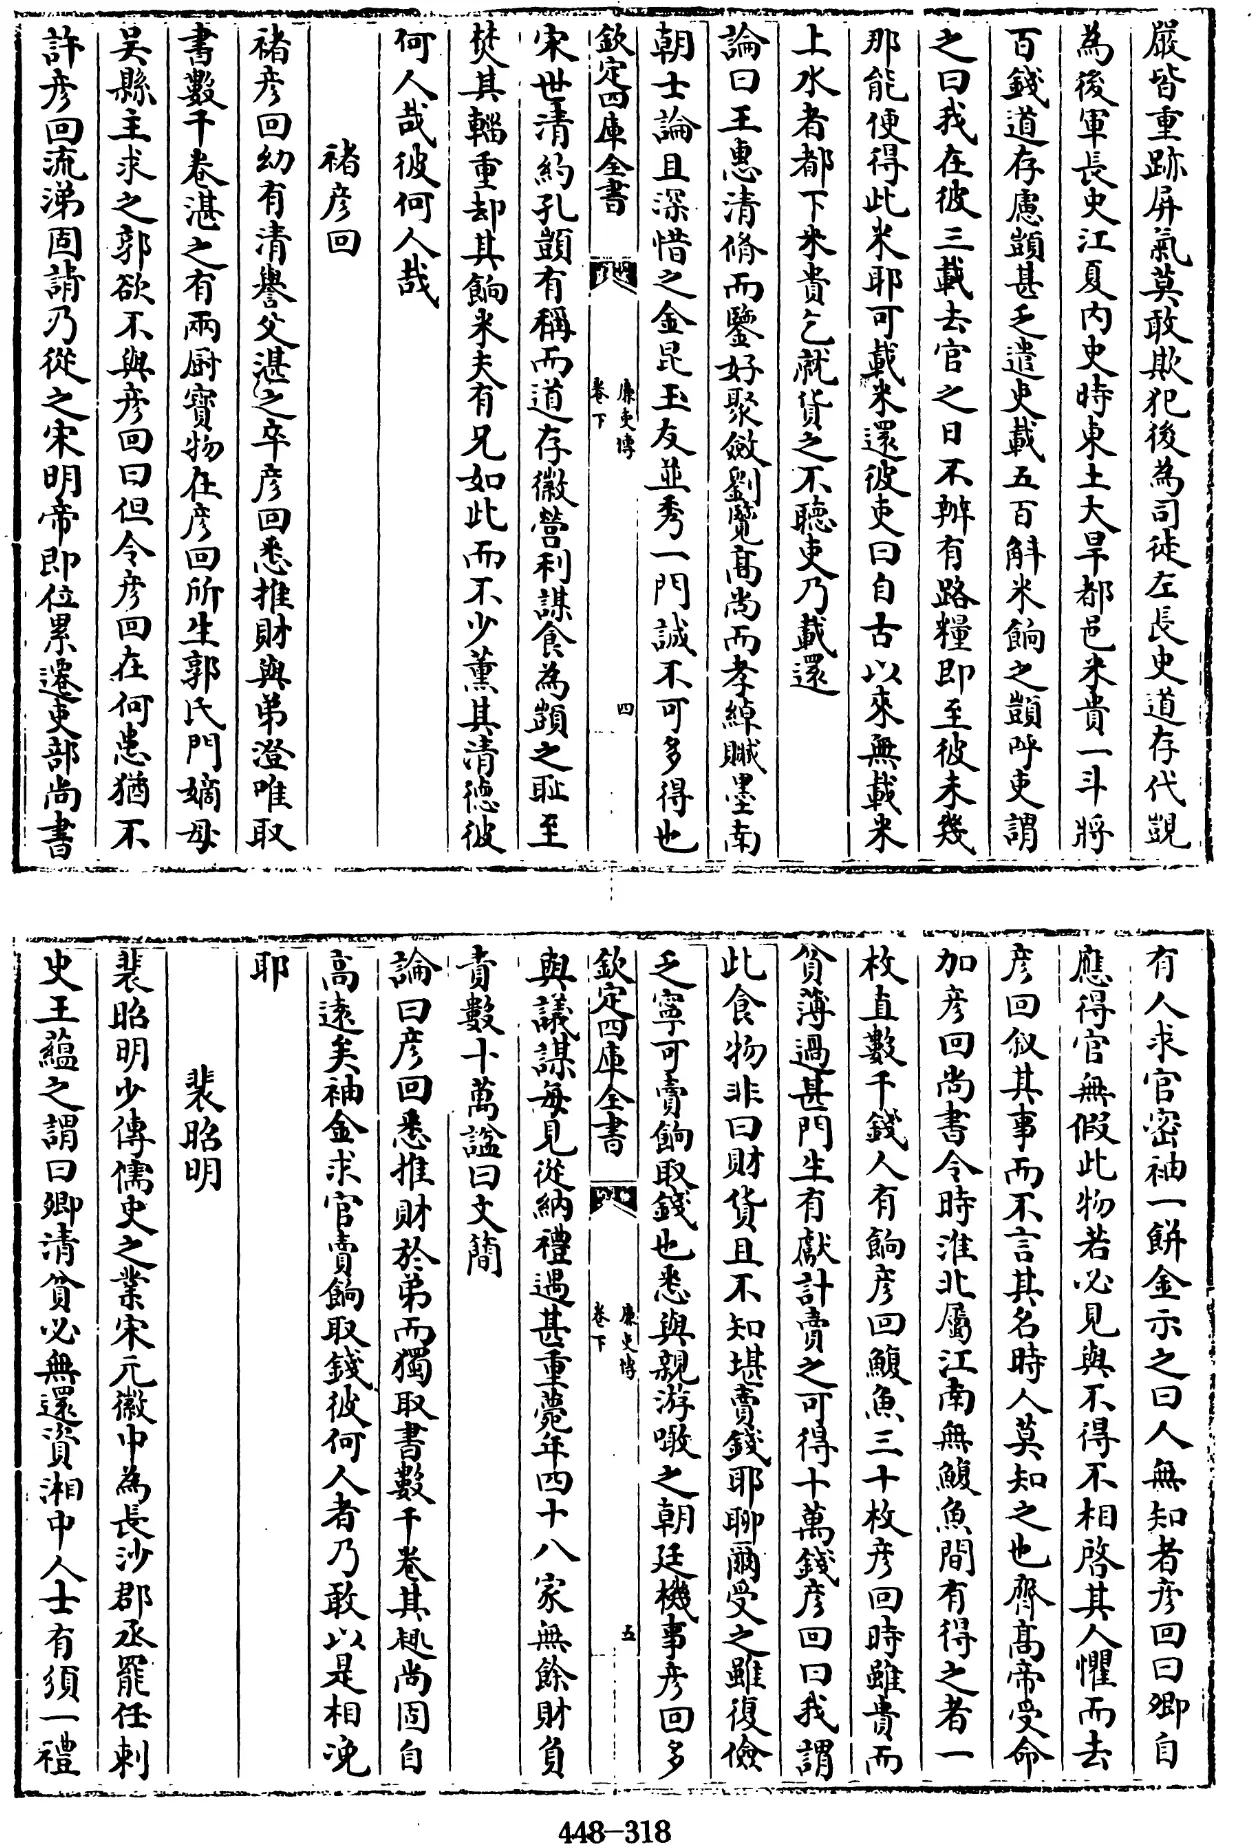 嚴皆重跡屏氣莫敢欺犯後為司徒左長史道存代覬
為後軍長史江夏内史時東土大旱都邑米貴一斗將
百錢道存慮顗甚乏遣吏載五百斛米餉之顗呼吏謂
之曰我在彼三載去官之日不辦有路糧即至彼未幾
那能便得此米耶可載米還彼吏曰自古以來無載米
上水者都下米貴乞就貨之不聽吏乃載還
論曰王惠清脩而鑒好聚斂劉覽高尚而孝綽贓墨南
朝士論且深惜之金昆玉友並秀一門誠不可多得也
欽定四庫全書
廉吏傳
卷下
四
宋世清約孔顗有稱而道存徽營利謀食為顗之耻至
焚其輜重却其餉米夫有兄如此而不少薰其清德彼
何人哉彼何人哉
褚彦回
褚彦回幼有清譽父湛之卒彦回悉推財與弟澄唯取
書數千卷湛之有兩厨寳物在彦回所生郭氏門嫡母
吴縣主求之郭欲不與彦回曰但令彦回在何患猶不
許彦回流涕固請乃從之宋明帝即位累遷吏部尚書
有人求官密袖一餅金示之曰人無知者彦回曰卿自
應得官無假此物若必見與不得不相啓其人懼而去
彦回叙其事而不言其名時人莫知之也齊髙帝受命
加彦回尚書令時淮北屬江南無鰒魚間有得之者一
枚直數千錢人有餉彦回鰒魚三十枚彦回時雖貴而
貧薄過甚門生有獻計賣之可得十萬錢彦回曰我謂
此食物非曰財貨且不知堪賣錢耶聊爾受之雖復儉
乏寧可賣餉取錢也悉與親游噉之朝廷機事彦回多
欽定四庫全書
廉吏傳
卷下
五
與議謀每見從納禮遇甚重薨年四十八家無餘財負
責數十萬諡曰文簡
論曰彦回悉推財於弟而獨取書數千卷其趣尚固自
高遠矣袖金求官賣餉取錢彼何人者乃敢以是相浼
耶
裴昭明
裴昭明少傳儒史之業宋元徽中為長沙郡丞罷任刺
史王蘊之謂曰卿清貧必無還資湘中人士有須一禮
448-318